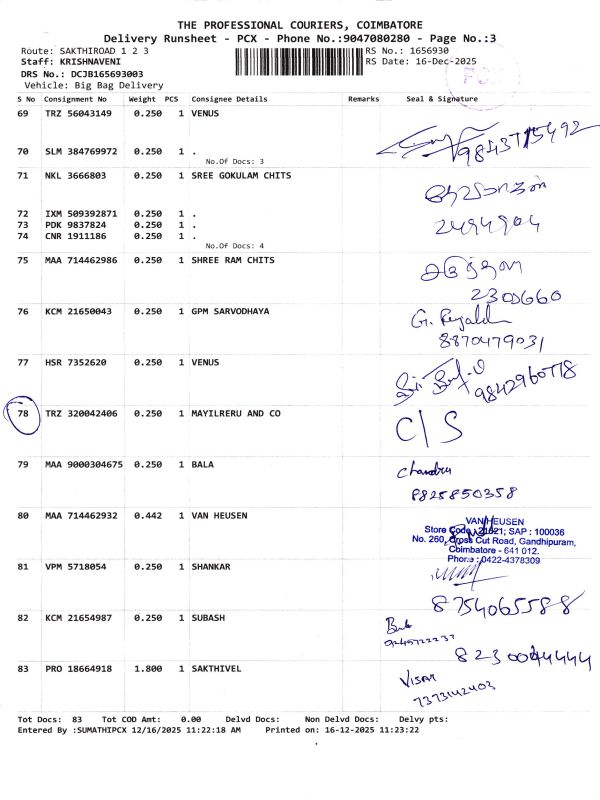 THE PROFESSIONAL COURIERS, COIMBATORE
Delivery Runsheet - PCX - Phone No.:9047080280 - Page No.:3
Route: SAKTHIROAD 1 2 3
RS No.: 1656930
Staff: KRISHNAVENI
RS Date: 16-Dec-2025
DRS No.: DCJB165693003
Vehicle: Big Bag Delivery
S No Consignment No Weight PCS Consignee Details Remarks Seal & Signature
69 TRZ 56043149 0.250 1 VENUS
9843715492
70 SLM 384769972 0.250 1 .
No.Of Docs: 3
71 NKL 3666803 0.250 1 SREE GOKULAM CHITS
72 IXM 509392871 0.250 1 .
2494904
73 PDK 9837824 0.250 1 .
74 CNR 1911186 0.250 1 .
No.Of Docs: 4
75 MAA 714462986 0.250 1 SHREE RAM CHITS
2300660
76 KCM 21650043 0.250 1 GPM SARVODHAYA
8870479031
77 HSR 7352620 0.250 1 VENUS
9842960778
78 TRZ 320042406 0.250 1 MAYILRERU AND CO
C/S
79 MAA 9000304675 0.250 1 BALA
Chandru
9825850358
80 MAA 714462932 0.442 1 VAN HEUSEN
VAN HEUSEN
Store Code : 21621; SAP : 100036
No. 260, Cross Cut Road, Gandhipuram,
Coimbatore - 641 012.
Phone : 0422-4378309
81 VPM 5718054 0.250 1 SHANKAR
8754065588
82 KCM 21654987 0.250 1 SUBASH
8230044444
83 PRO 18664918 1.800 1 SAKTHIVEL
7373142403
Tot Docs: 83 Tot COD Amt: 0.00 Delvd Docs: Non Delvd Docs: Delvy pts:
Entered By :SUMATHIPCX 12/16/2025 11:22:18 AM Printed on: 16-12-2025 11:23:22